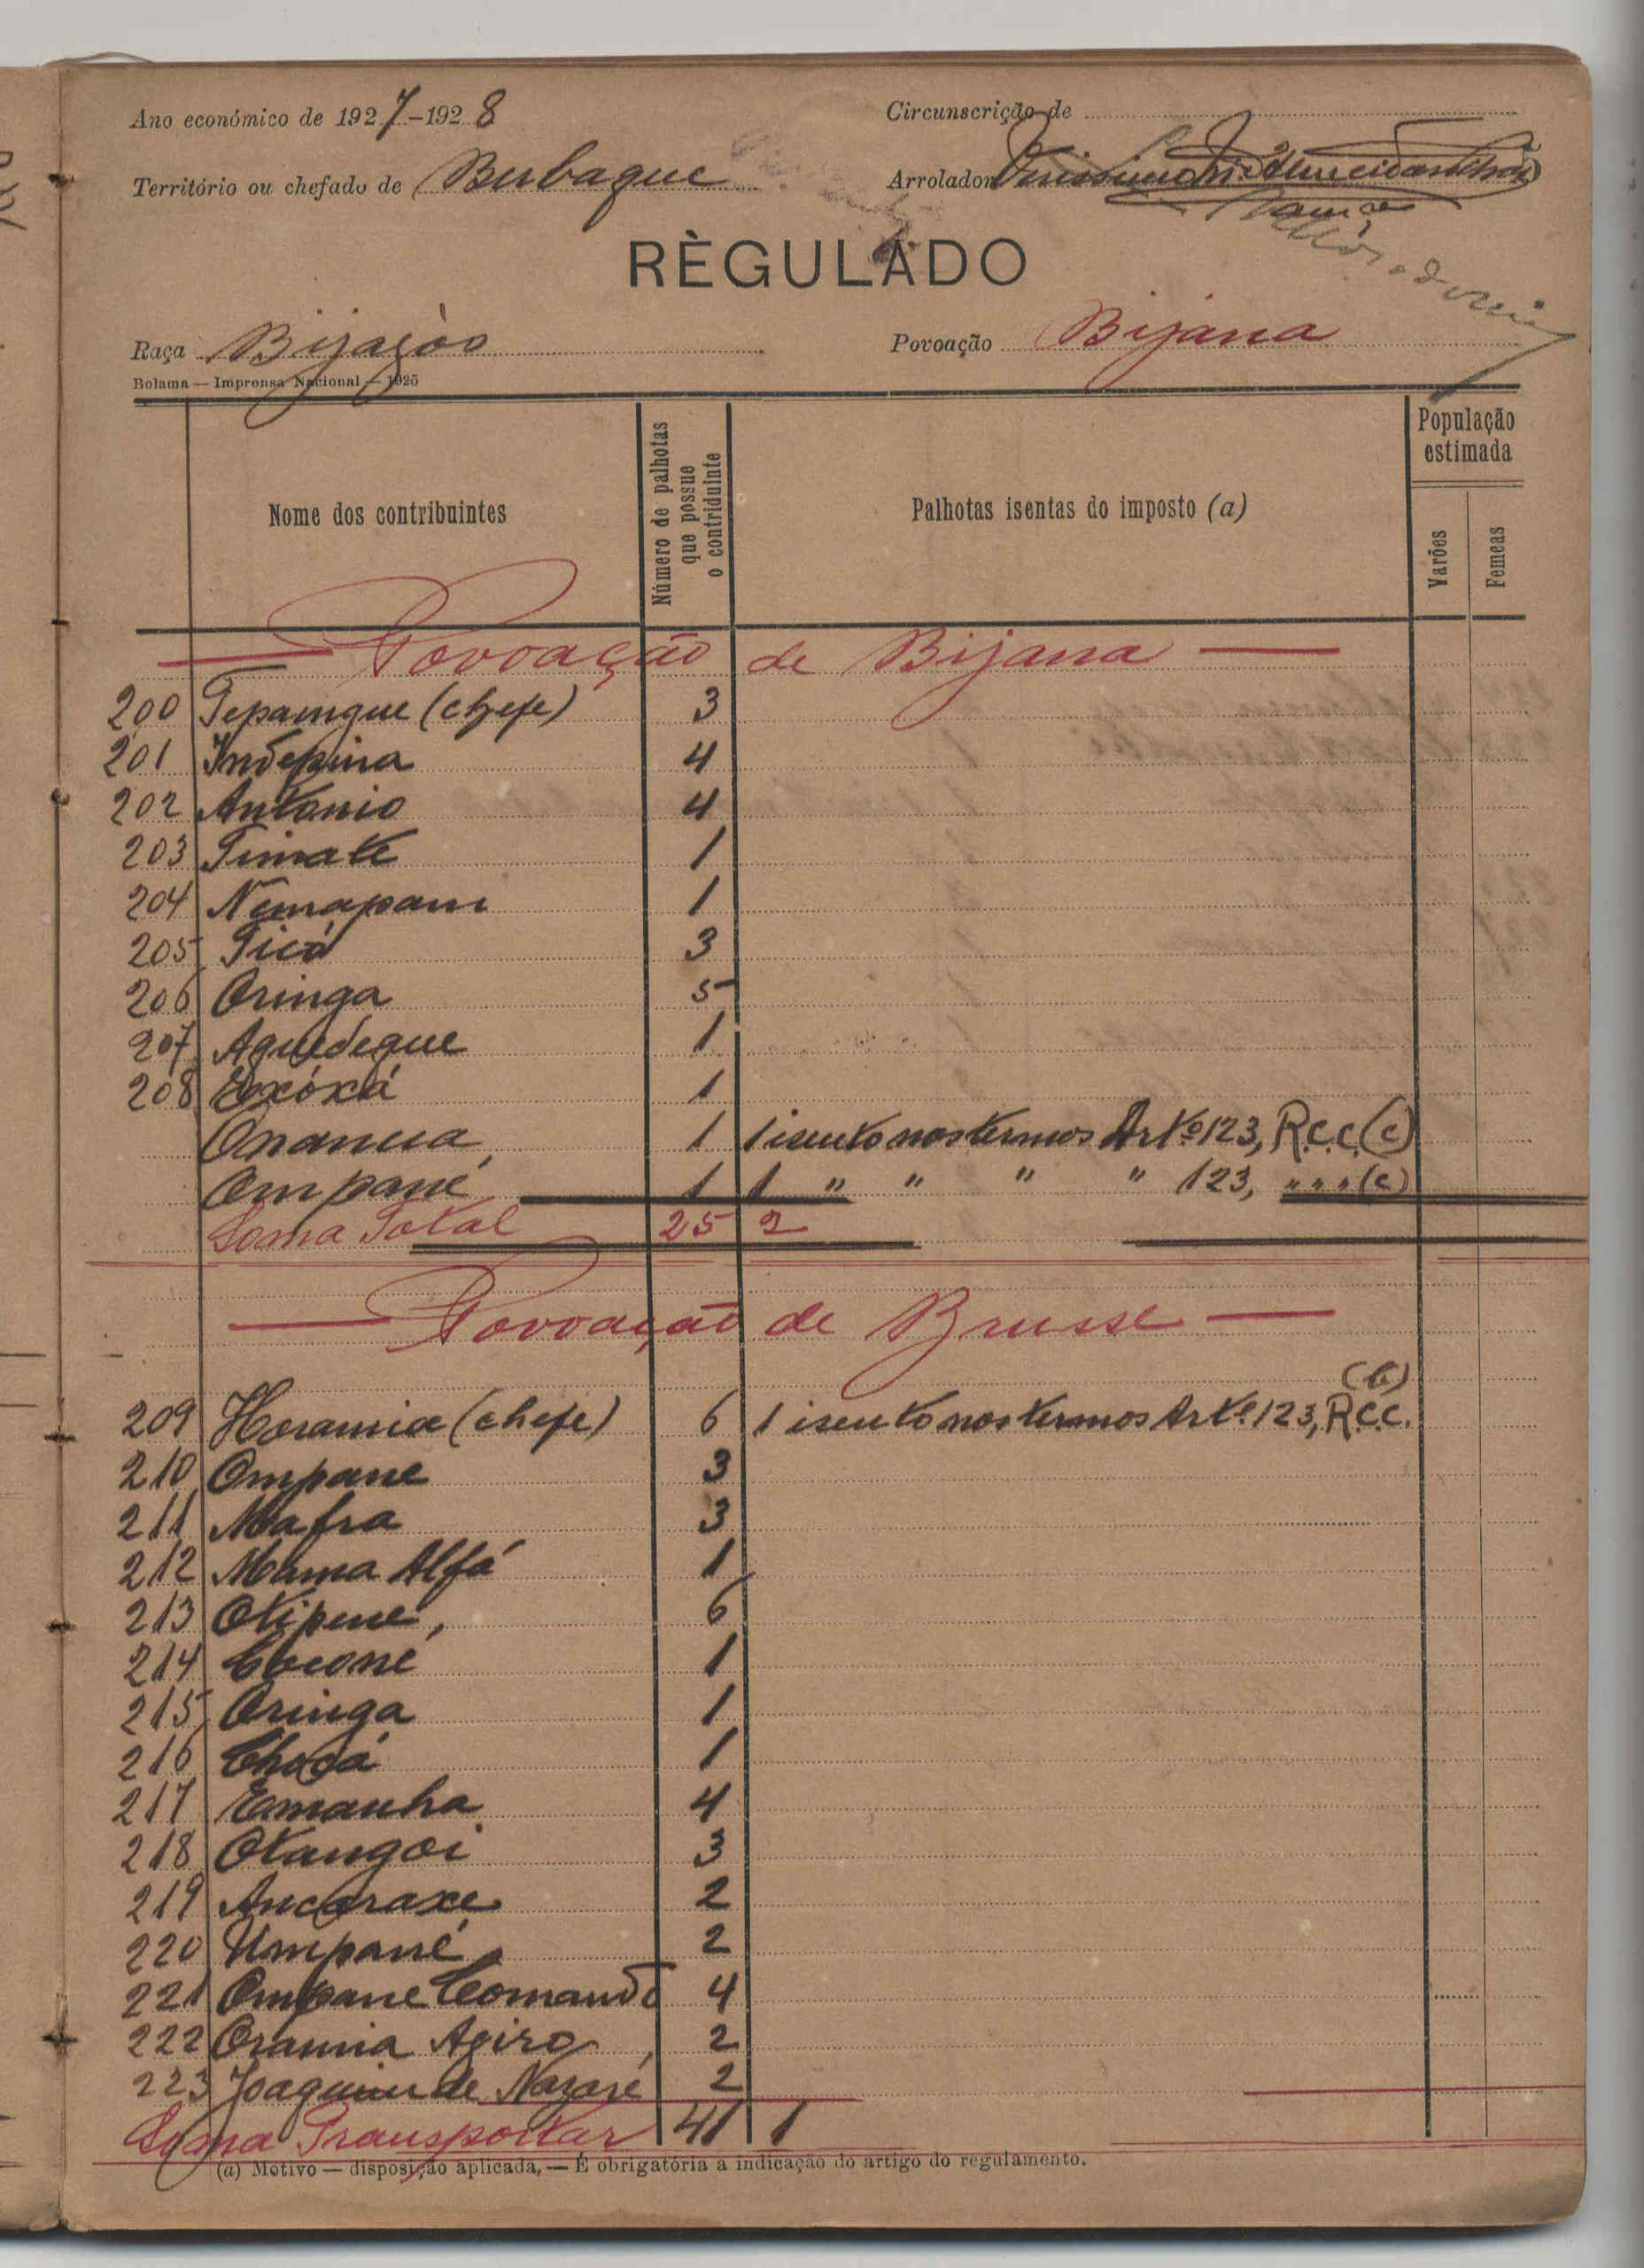 Ano económico de 1927-1928
Circunscrição de
Território ou chefado de Bubaque
Arrolador
RÈGULADO
Raça Bijagós
Povoação Bijana
Bolama — Imprensa Nacional — 1925
Nome dos contribuintes
Número de palhotas que possue o contriduinte
Palhotas isentas do imposto (a)
População estimada
Varões
Femeas
Povoação de Bijana
200 Tepamgue (chefe) 3
201 Indepina 4
202 Antonio 4
203 Timate 1
204 Nemapam 1
205 Ticó 3
206 Oringa 5
207 Aguedegue 1
208 Exóxá 1
Onanua 1 1 isento nos termos Artº 123, R.C.C. (c)
Ompané 1 1 " " " " 123, " " " (c)
Soma Total 25 2
Povoação de Brusse
(b)
209 Horamia (chefe) 6 1 isento nos termos Artº 123, R.C.C.
210 Ompane 3
211 Mafra 3
212 Mama Alfá 1
213 Otipene, 6
214 Cocone 1
215 Oringa 1
216 Chocá 1
217 Eamanha 4
218 Otangoi 3
219 Ancaraxe 2
220 Umpané 2
221 Ompane Comando 4
222 Oramia Agiro 2
223 Joaquim de Nazaré 2
Soma Transportar 41 1
(a) Motivo — disposição aplicada, — É obrigatória a indicação do artigo do regulamento.